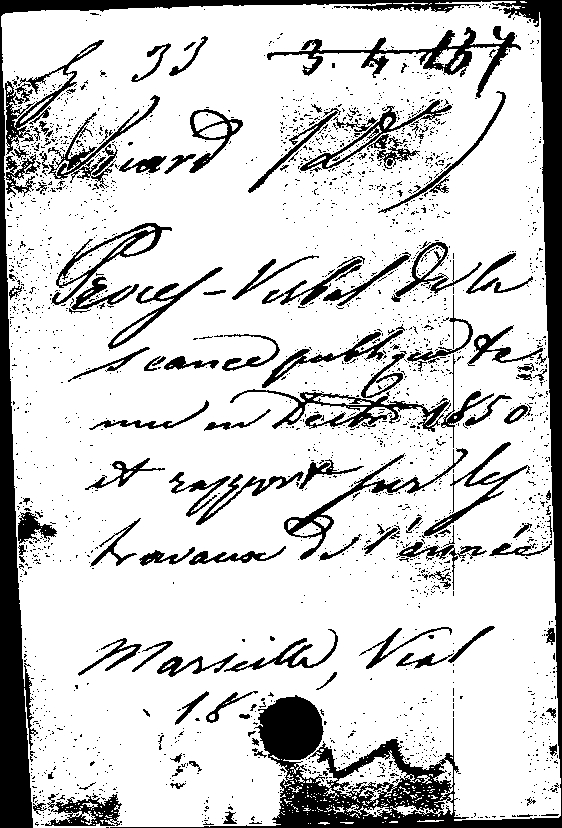 G. 33 3. 4. 167
Siard (Dr)
Procès-Verbal de la
séance publique te
nue en Decbre 1850
et rapport sur les
travaux de l'année
Marseille, Vial
18